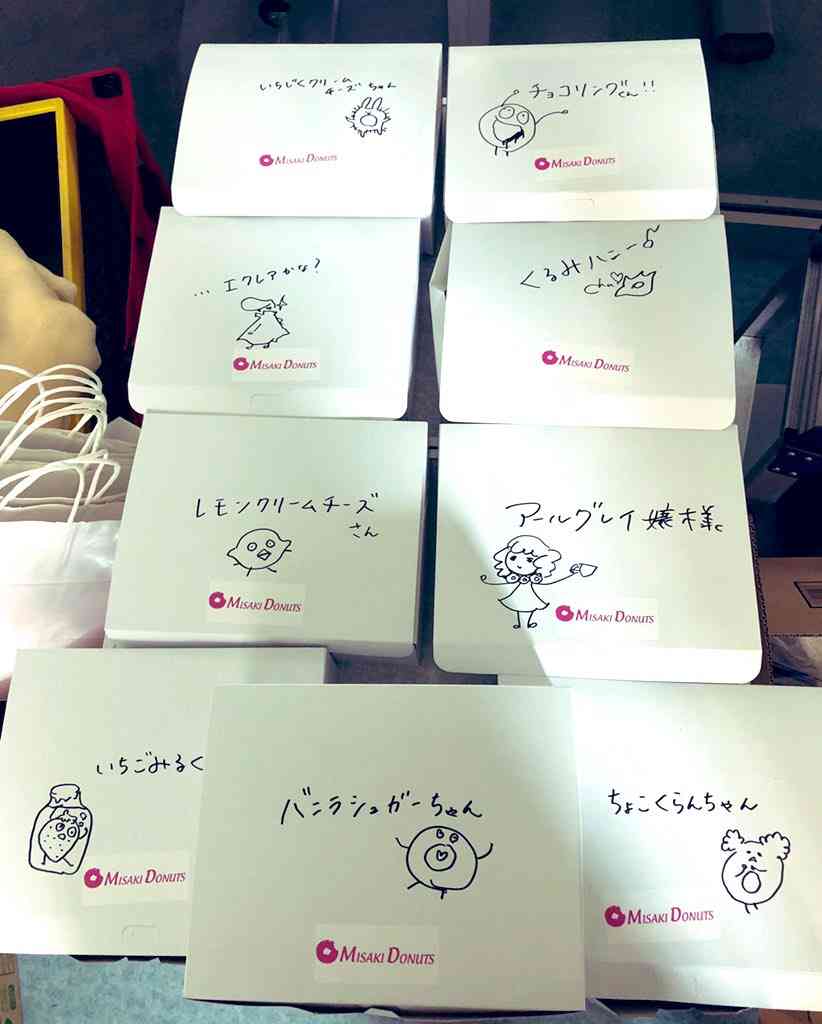 いちじくクリーム
チーズちゃん
MISAKI DONUTS
チョコリングくん!!
MISAKI DONUTS
...エクレアかな?
MISAKI DONUTS
くるみハニー♪
Chu♡
MISAKI DONUTS
レモンクリームチーズ
さん
MISAKI DONUTS
アールグレイ嬢様。
MISAKI DONUTS
いちごみるく
MISAKI DONUTS
バニラシュガーちゃん
MISAKI DONUTS
ちょこくらんちゃん
MISAKI DONUTS